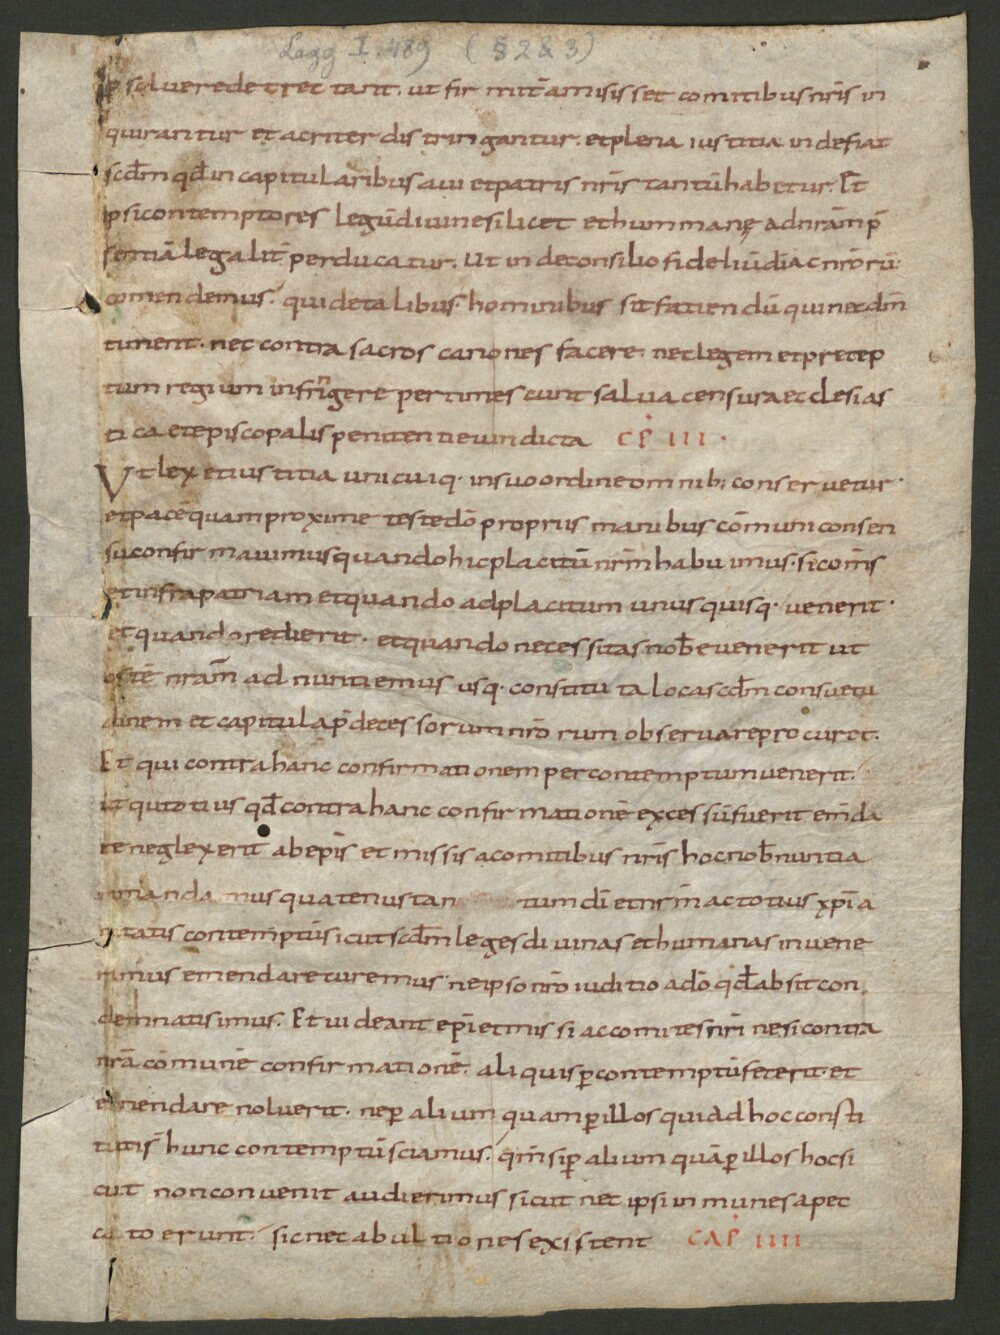 Legg I. 489 (§ 2 & 3)
p soluere detrectant. ut fir mit̄ amisis set comitibus nr̄is in
quirantur et acriter distringantur. et plena iustitia inde fiat
scd̄m qd̄ in capitularibus aui et patris nr̄is tantū habetur. Et
ipsi contemptores legū diuine silicet et hummanę ad nrām p̄
sentiā legalit̄ perducatur. Ut inde consilio fideliū di ac nr̄orū
comendemus. qui de talibus hominibus sit fatiendū qui nec dm̄
timent. nec contra sacros canones facere. nec legem et precep
tum regium infringere pertimescunt salua censura ecclesias
tica et episcopalis penitentie uindicta CP̄ III.
Vt lex et iustitia unicuiq. in suo ordine omnib; conseruetur.
et pacē quam proxime teste dō propriis manibus cōmuni consen
su confirmauimus quando hic placitū nrm̄ habuimus. sicom̄s
et infra patriam et quando ad placitum unus quisq. uenerit.
et quando redierit. et quando necessitas nob̄ euenerit ut
ostē nrām adnuntiemus usq. constituta loca scd̄m consuetu
dinem et capitula p̄decessorum nr̄orum obseruare procuret.
Et qui contra hanc confirmationem per contemptum uenerit.
ut quitotius qd̄ contra hanc confirmationē excessū fuerit em̄da
re neglexerit ab epīs et missis a comitibus nr̄is hoc nob̄ nuntia
ri mandamus quatenus tan tum dī et nr̄m ac totius xp̄ia
nitatis contemptū sicut scd̄m leges diuinas et humanas inuene
rimus emendare curemus. ne ipso nr̄o iuditio a dō qd̄ absit con
demnatisimus. Et uideant epī et missi ac comites nr̄i ne si contra
nrā cōmunē confirmationē. aliquis p contemptū feterit. et
emendare noluerit. ne p alium quam p illos qui ad hoc consti
tutis hunc contemptū sciamus. qm̄ si p alium quā p illos hoc si
cut non conuenit audierimus sicut nec ipsi inmunes a pec
cato erunt. sic nec ab ultiones existent CAP̄ IIII